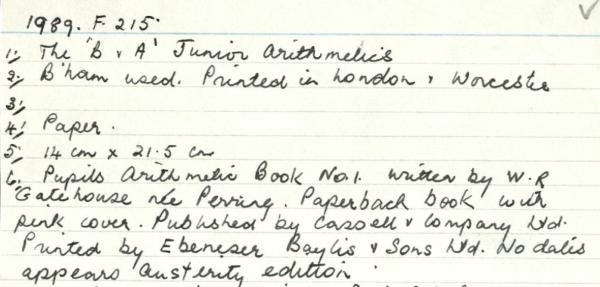 1989. F. 215.
1. The 'B & A' Junior Arithmetics
2. B'ham used. Printed in London & Worcester
3.
4. Paper.
5. 14 cm x 21.5 cm
6. Pupils Arithmetic Book No.1. written by W.R
Gatehouse née Perring. Paperback book with
pink cover. Published by Cassell & Company Ltd.
Printed by Ebeneser Baylis & Sons Ltd. No dates
appears austerity edition